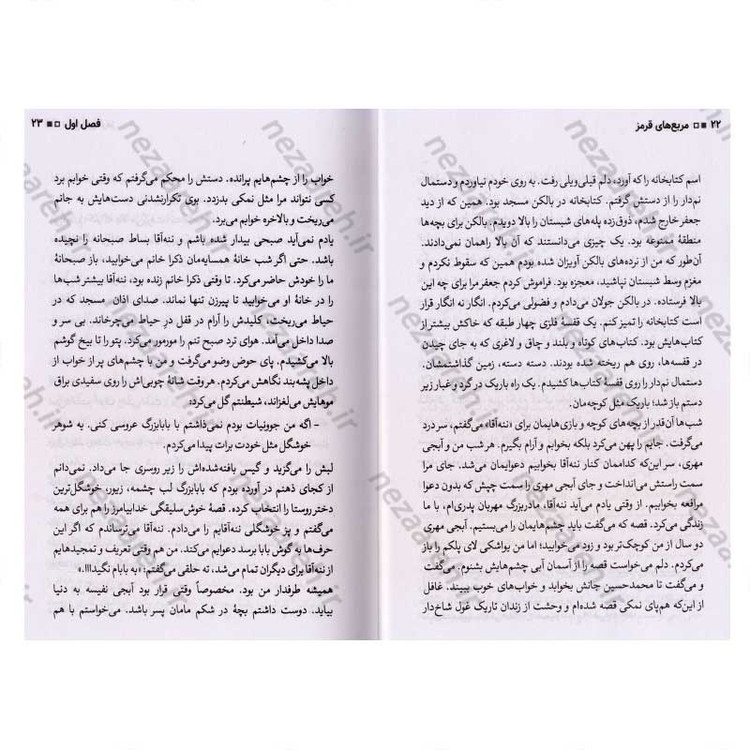 ۲۲ ■ □ مربع‌های قرمز
اسم کتابخانه را که آورد، دلم قیلی‌ویلی رفت. به روی خودم نیاوردم و دستمال
نم‌دار را از دستش گرفتم. کتابخانه در بالکن مسجد بود. همین که از دید
جعفر خارج شدم، ذوق‌زده پله‌های شبستان را بالا دویدم. بالکن برای بچه‌ها
منطقهٔ ممنوعه بود. یک چیزی می‌دانستند که آن بالا راهمان نمی‌دادند.
آن‌طور که من از نرده‌های بالکن آویزان شده بودم همین که سقوط نکردم و
مغزم وسط شبستان نپاشید، معجزه بود. فراموش کردم جعفر مرا برای چه این
بالا فرستاده. در بالکن جولان می‌دادم و فضولی می‌کردم. انگار نه انگار قرار
است کتابخانه را تمیز کنم. یک قفسهٔ فلزی چهار طبقه که خاکش بیشتر از
کتاب‌هایش بود. کتاب‌های کوتاه و بلند و چاق و لاغری که به جای چیدن
در قفسه‌ها، روی هم ریخته شده بودند. دسته دسته، زمین گذاشتمشان.
دستمال نم‌دار را روی قفسهٔ کتاب‌ها کشیدم. یک راه باریک در گرد و غبار زیر
دستم باز شد؛ باریک مثل کوچه‌مان.
شب‌ها آن‌قدر از بچه‌های کوچه و بازی‌هایمان برای «ننه‌آقا» می‌گفتم، سر درد
می‌گرفت. جایم را پهن می‌کرد بلکه بخوابم و آرام بگیرم. هر شب من و آبجی
مهری، سر این‌که کداممان کنار ننه‌آقا بخوابیم دعوایمان می‌شد. جای مرا
سمت راستش می‌انداخت و جای آبجی مهری را سمت چپش که بدون دعوا
مرافعه بخوابیم. از وقتی یادم می‌آید ننه‌آقا، مادربزرگ مهربان پدری‌ام، با ما
زندگی می‌کرد. قصه که می‌گفت باید چشم‌هایمان را می‌بستیم. آبجی مهری
دو سال از من کوچک‌تر بود و زود می‌خوابید؛ اما من یواشکی لای پلکم را باز
می‌کردم. دلم می‌خواست قصه را از آسمان آبی چشم‌هایش بشنوم. می‌گفت
و می‌گفت تا محمدحسین جانش بخوابد و خواب‌های خوب ببیند. غافل
از این‌که هم‌پای نمکی قصه شده‌ام و وحشت از زندان تاریک غول شاخ‌دار
فصل اول □ ■ ۲۳
خواب را از چشم‌هایم پرانده. دستش را محکم می‌گرفتم که وقتی خوابم برد
کسی نتواند مرا مثل نمکی بدزدد. بوی تکرارنشدنی دست‌هایش به جانم
می‌ریخت و بالاخره خوابم می‌برد.
یادم نمی‌آید صبحی بیدار شده باشم و ننه‌آقا بساط صبحانه را نچیده
باشد. حتی اگر شب خانهٔ همسایه‌مان ذکرا خانم می‌خوابید، باز صبحانهٔ
ما را خودش حاضر می‌کرد. تا وقتی ذکرا خانم زنده بود، ننه‌آقا بیشتر شب‌ها
را در خانهٔ او می‌خوابید تا پیرزن تنها نماند. صدای اذان مسجد که در
حیاط می‌ریخت، کلیدش را آرام در قفل در حیاط می‌چرخاند. بی سر و
صدا داخل می‌آمد. هوای ترد صبح تنم را مورمور می‌کرد. پتو را تا بیخ گوشم
بالا می‌کشیدم. پای حوض وضو می‌گرفت و من با چشم‌های پر از خواب از
داخل پشه‌بند نگاهش می‌کردم. هر وقت شانهٔ چوبی‌اش را روی سفیدی براق
موهایش می‌لغزاند، شیطنتم گل می‌کرد:
- اگه من جوونیات بودم نمی‌ذاشتم با بابابزرگ عروسی کنی. یه شوهر
خوشگل مثل خودت برات پیدا می‌کردم.
لبش را می‌گزید و گیس بافته‌شده‌اش را زیر روسری جا می‌داد. نمی‌دانم
از کجای ذهنم در آورده بودم که بابابزرگ لب چشمه، زیور، خوشگل‌ترین
دختر روستا را انتخاب کرده. قصهٔ خوش‌سلیقگی خدابیامرز را هم برای همه
می‌گفتم و پز خوشگلی ننه‌آقایم را می‌دادم. ننه‌آقا می‌ترساندم که اگر این
حرف‌ها به گوش بابا برسد دعوایم می‌کند. من هم وقتی تعریف و تمجیدهایم
از ننه‌آقا برای دیگران تمام می‌شد، ته حلقی می‌گفتم: «به بابام نگیدااا!.»
همیشه طرفدار من بود. مخصوصاً وقتی قرار بود آبجی نفیسه به دنیا
بیاید. دوست داشتم بچهٔ در شکم مامان پسر باشد. می‌خواستم با هم
nezaareh.ir